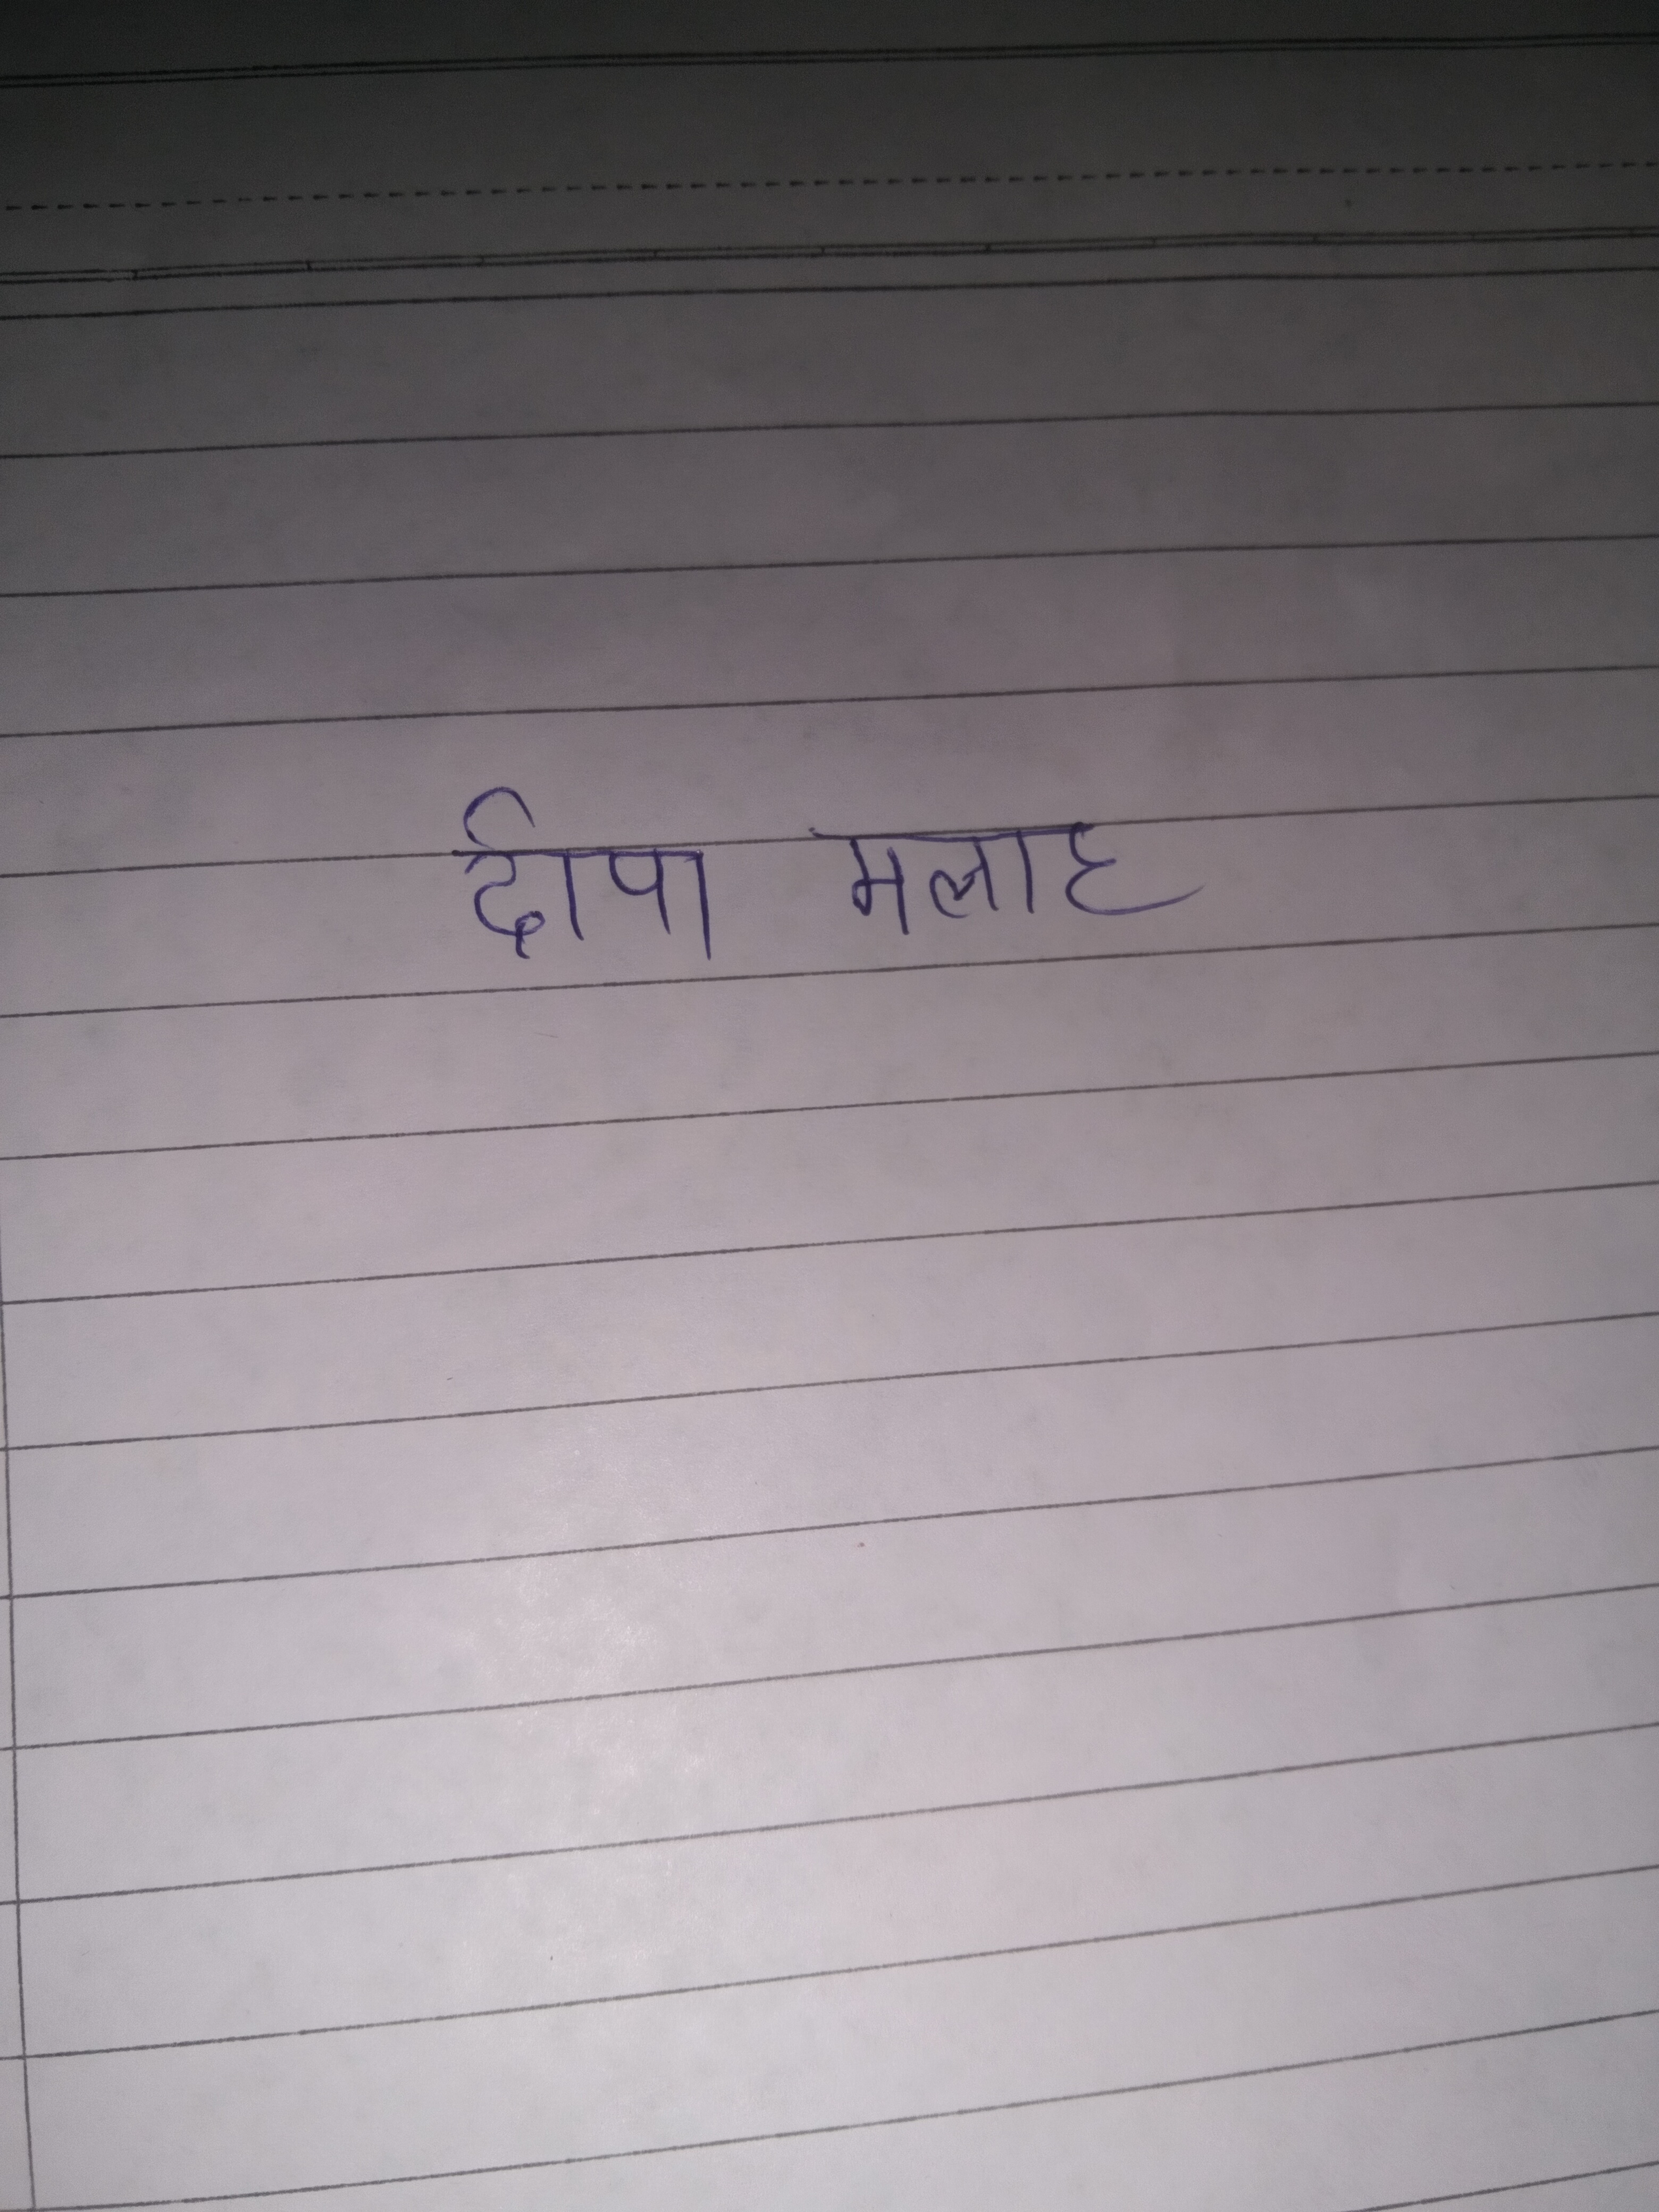 दीपा मलाह